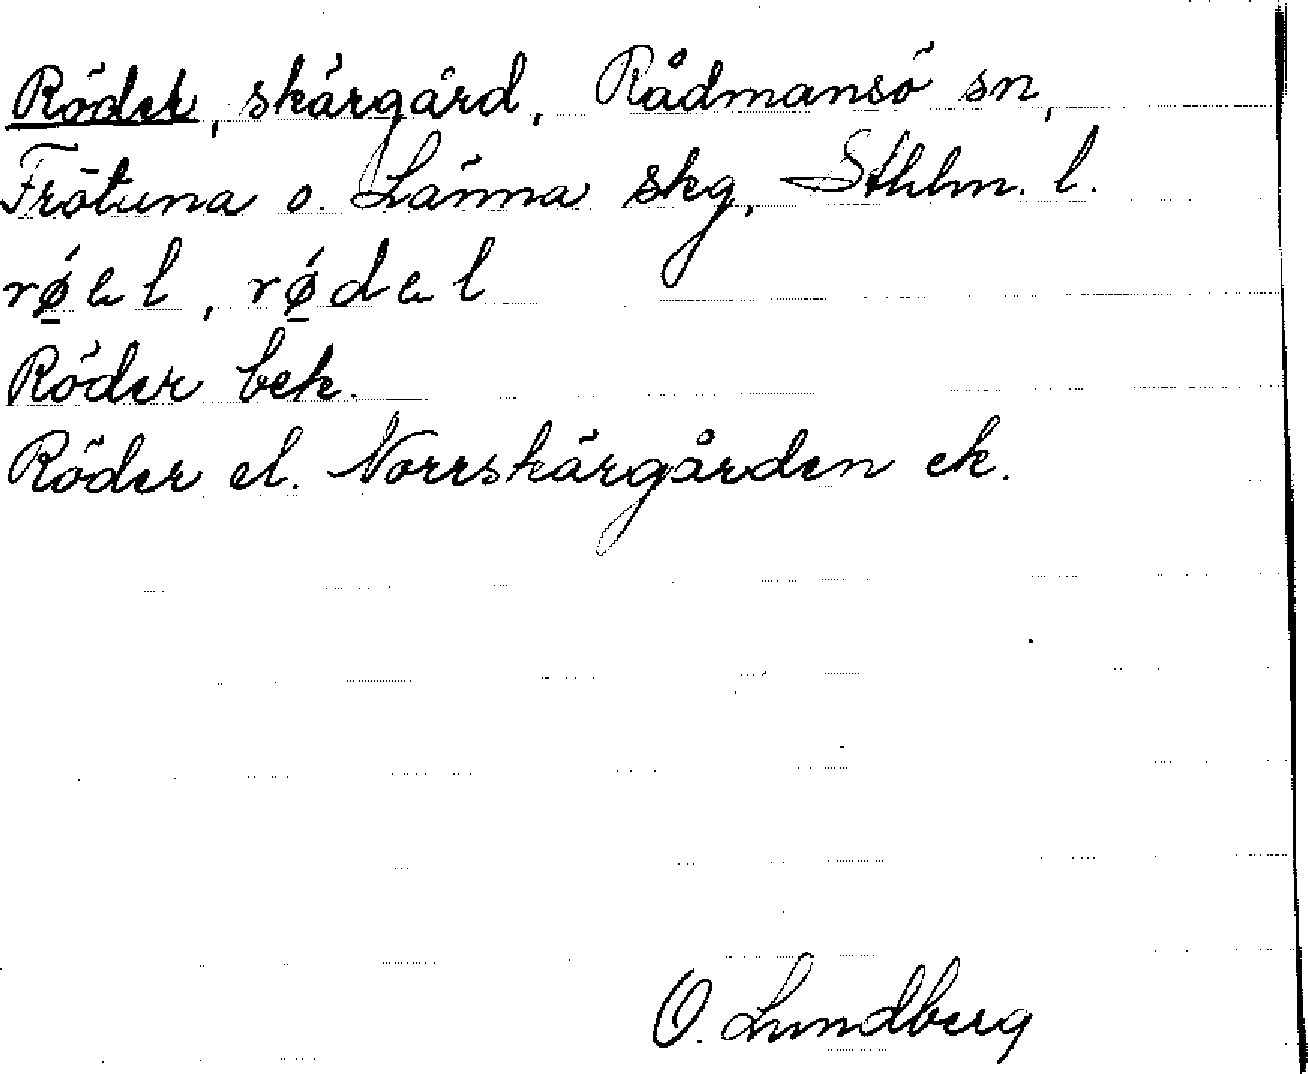 Röder, skärgård, Rådmansö sn,
Frötuna o. Länna skg, Sthlm. l.
rǿ̱el, rǿ̱del
Röder bek.
Röder el. Norrskärgården ek.
O. Lundberg